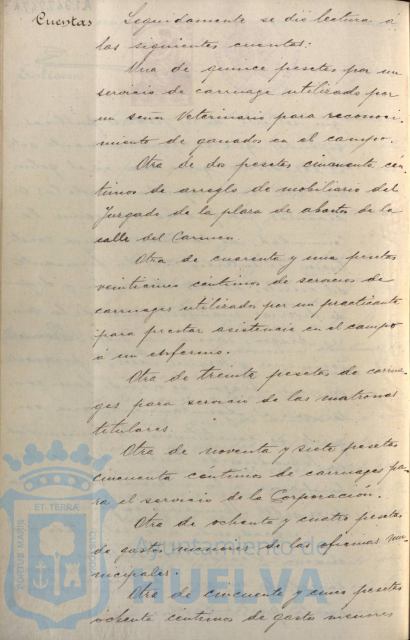 Cuentas
Seguidamente se dió lectura a
las siguientes cuentas:
Una de quince pesetas por un
servicio de carruage utilizado por
un señor Veterinario para reconoci-
miento de ganados en el campo.
Otra de dos pesetas cincuenta cén-
timos de arreglo de mobiliario del
Juzgado de la plaza de abastos de la
calle del Carmen.
Otra de cuarenta y una pesetas
veinticinco céntimos de servicios de
carruages utilizados por un practicante
para prestar asistencia en el campo
a un enfermo.
Otra de treinta pesetas de carrua-
ges para servicio de las matronas
titulares.
Otra de noventa y siete pesetas
cincuenta céntimos de carruages pa-
ra el servicio de la Corporación.
Otra de ochenta y cuatro pesetas
de gastos menores de las oficinas mu-
nicipales.
Otra de cincuenta y cinco pesetas
ochenta céntimos de gastos menores
ET TERRA
PORTUS MARIS
CUSTODIA
Ayuntamiento de
HUELVA